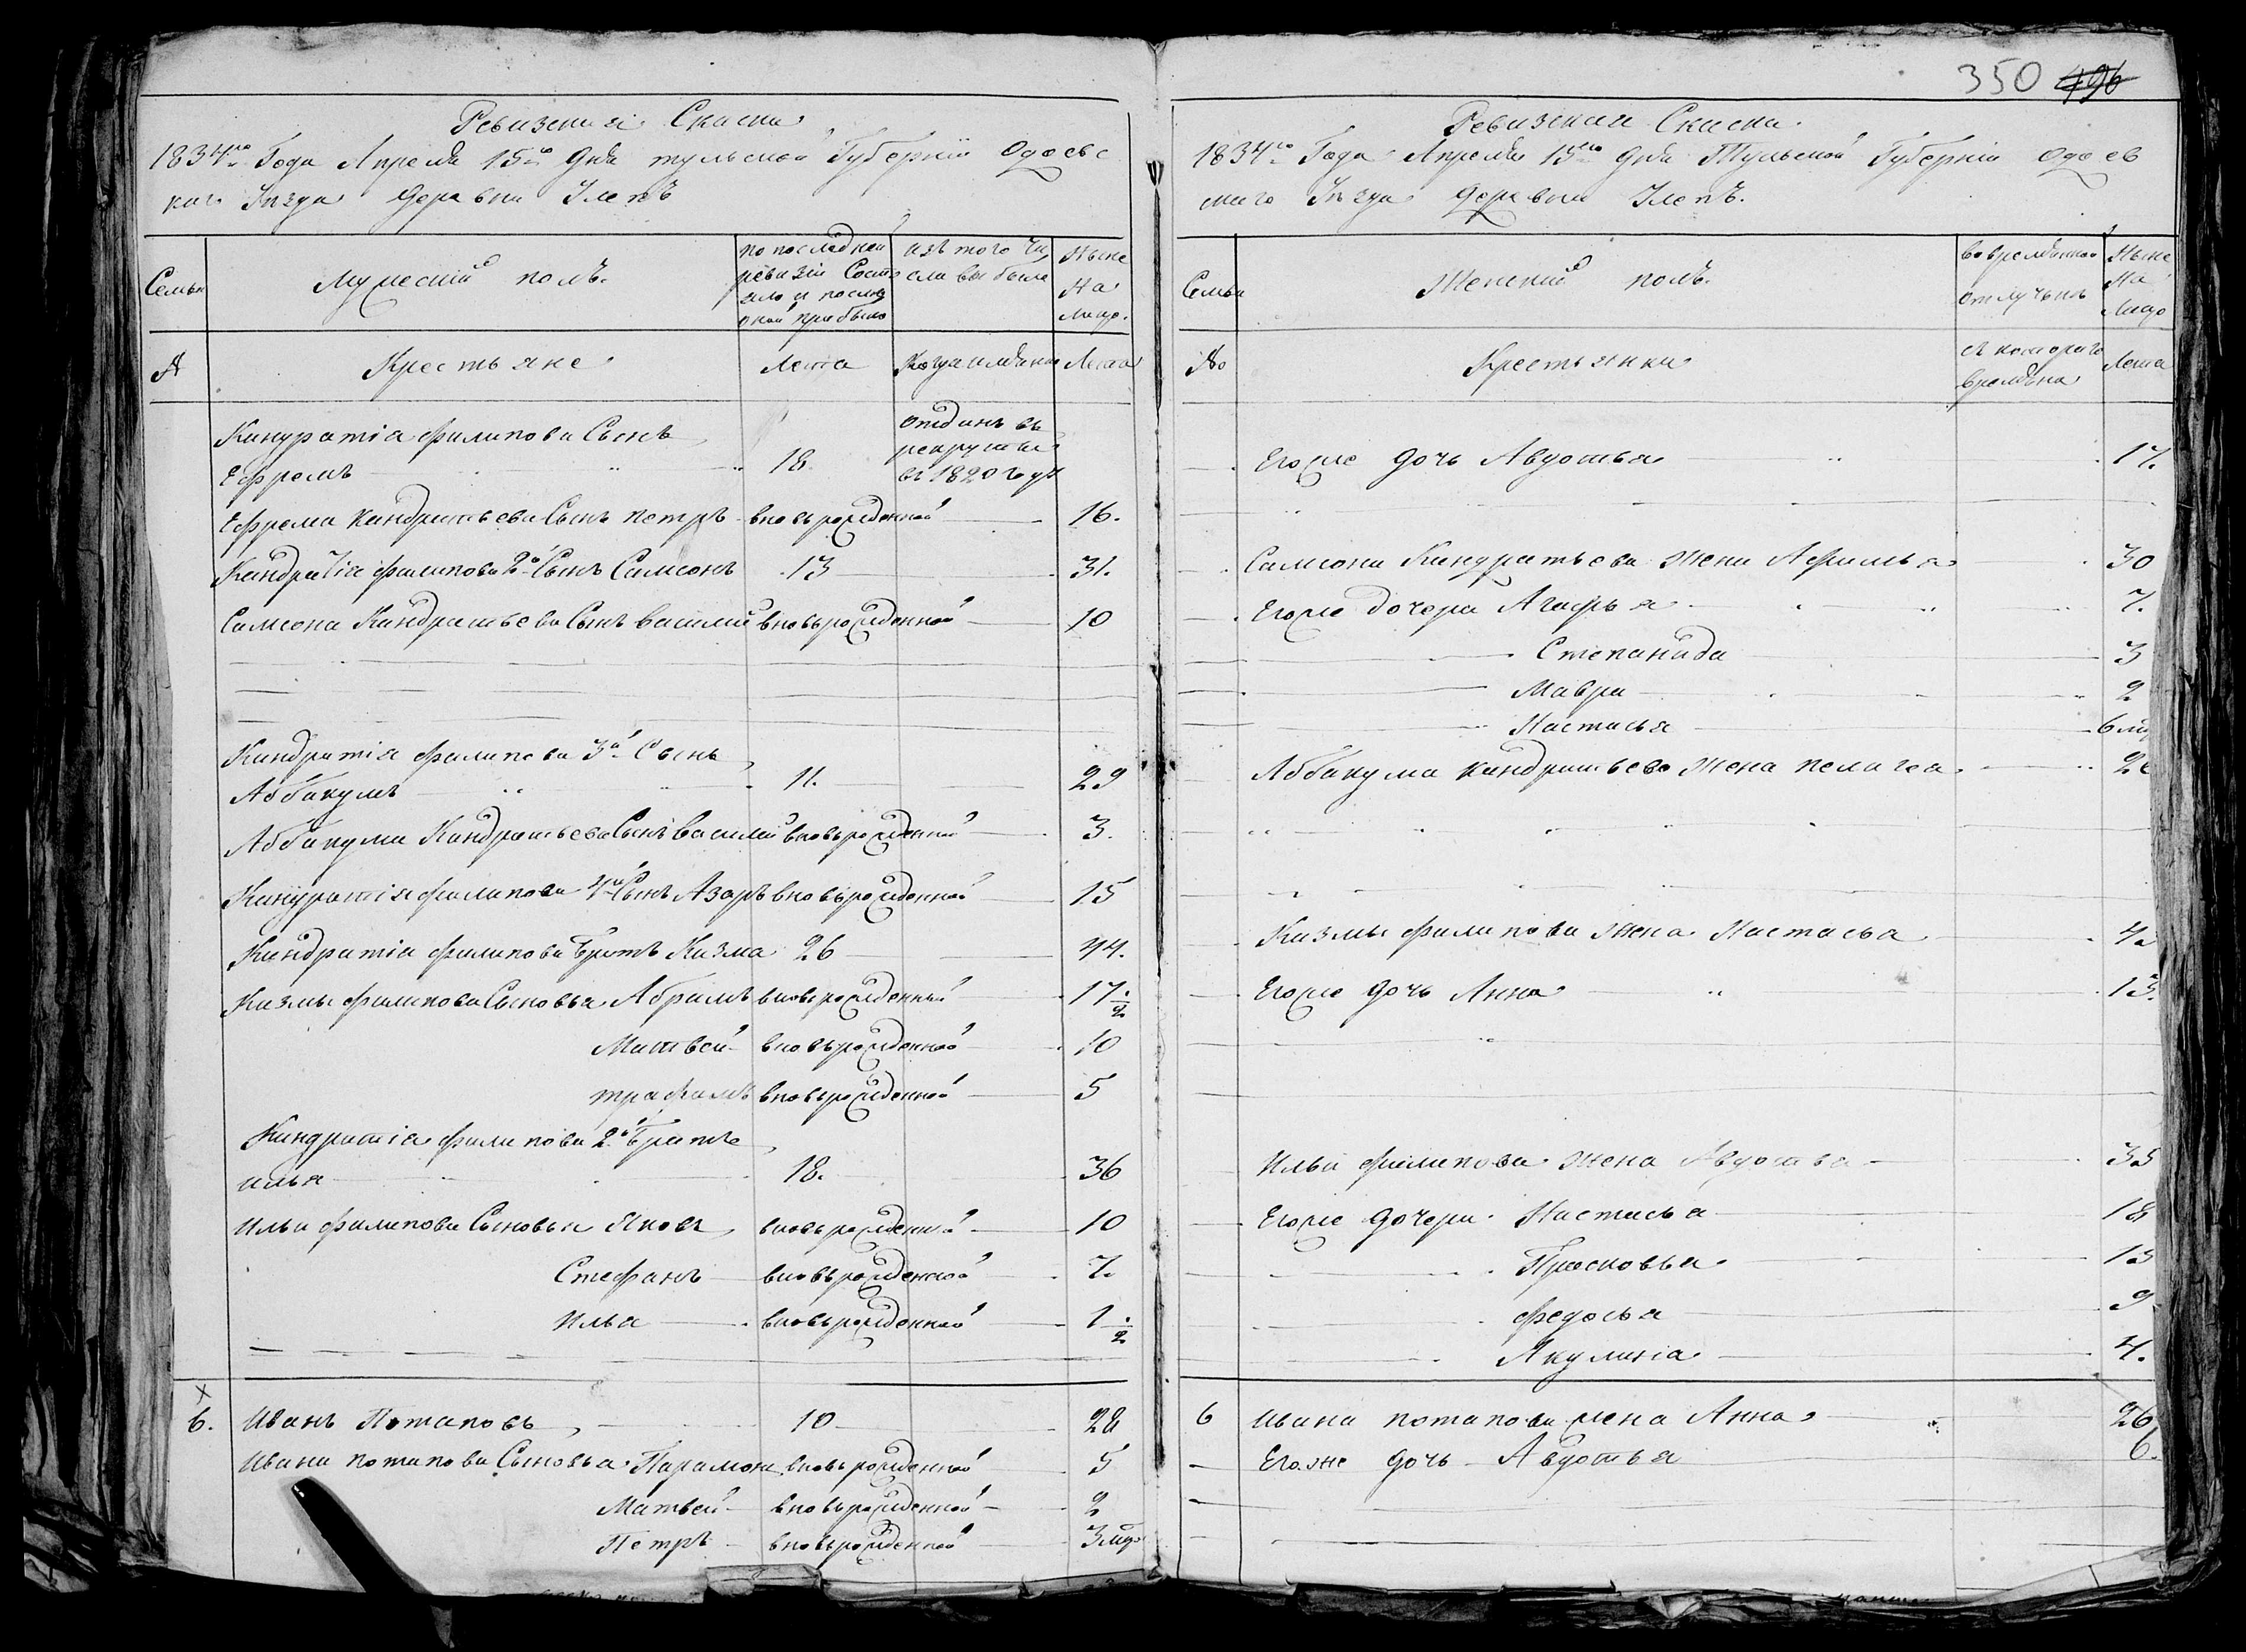 Ревизская Скаска
1834го Года Апреля 15го дня тульской Губернии Одоевс
каго Уезда деревни
Семьи
Мужеский полъ.
по последней ревизии Состояло и после оной прибыло
изъ того числа выбыло
Ныне На лицо.
№
Крестьяне
Лета
Когда имянно
Лета
Кандратіа филипова Сынъ
Ефремъ 18. отданъ въ рекруты въ 1820 году
Ефрема Кандратьева Сынъ петръ вновьрожденной 16.
Кандратіа филипова 2й Сынъ Самсонъ 13 31.
Самсона Кандратьева Сынъ василий вновьрожденной 10
Кандратія филипова 3й Сынъ
Аббакумъ 11. 29
Аббакума Кандратьева Сынъ василий вновьрожденной 3.
Кандратія филипова 4й Сынъ Азаръ вновьрожденной 15
Кандратіа филипова братъ Казма 26 44.
Казмы филипова Сыновья Абрамъ вновьрожденный 17 1/2
Матвей вновьрожденной 10
трафимъ вновьрожденной 5
Кандратіа филипова 2й братъ
илья 18. 36
Ильи филипова Сыновья Яковъ вновьрожденной 10
Стефанъ вновьрожденной 7.
Илья вновьрожденной 1 1/2
6. Иванъ Потаповъ 10 28
Ивана потапова Сыновья Парамонъ вновьрожденной 5
Матвей вновьрожденной 2
Петръ вновьрожденной 3 мцо
350 496
Ревизская Скаска.
1834го Года Апреля 15го дня Тульской Губерніи Одоев
скаго Уезда деревни
Семьи
Женский полъ.
во временной отлучкъ
Ныне На Лицо
№
Крестьянки
съ котораго времяна
Лета
Егоже дочь Авдотья 17.
Самсона Кандратьева жена Афимья 30
Егоже дочери Агафья 7.
Степанида 3
Мавра 2
Настасья 6 мц
Аббакума Кандратьева жена пелагеа
Казмы филипова жена Настасья
Егоже дочь Анна 13.
Ильи филипова жена Авдотья 35
Егоже дочери Настасья 18
Прасковья 13
федосья 9
Акулина 4.
6 Ивана потапова жена Анна 26
Егоже дочь Авдотья 6.